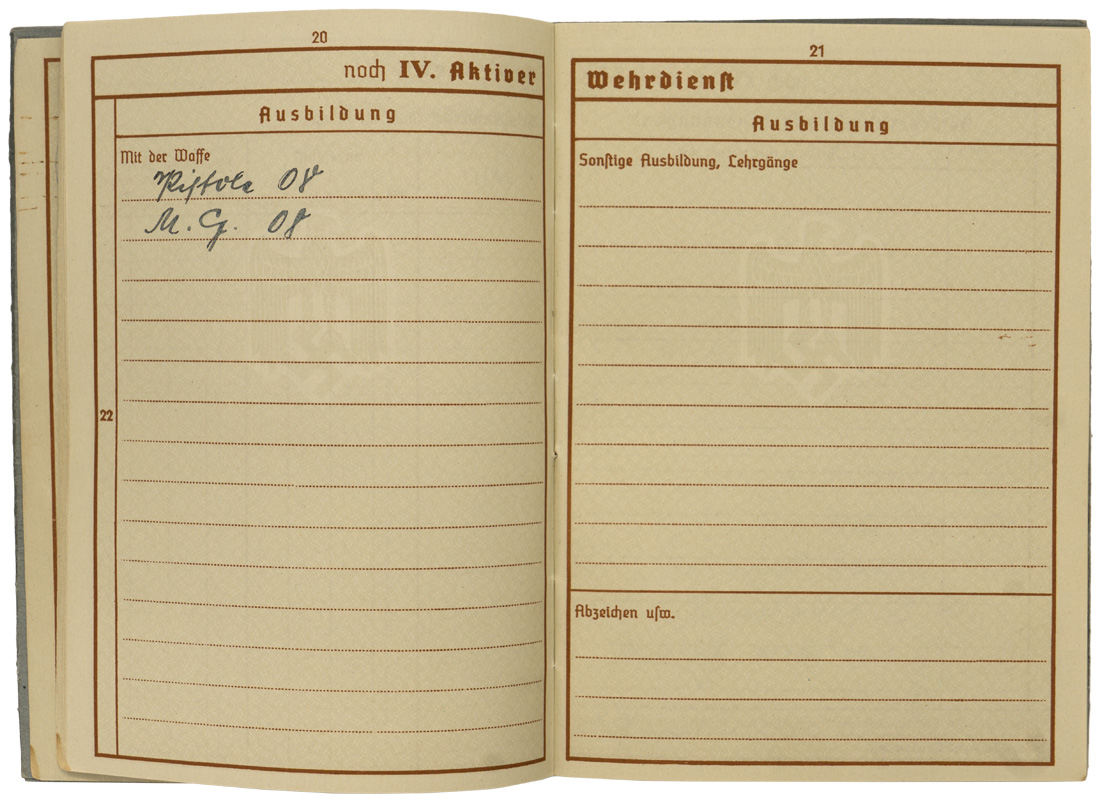 20
noch IV. Aktiver
Ausbildung
22
Mit der Waffe
Pistole 08
M. G. 08
21
Wehrdienst
Ausbildung
Sonstige Ausbildung, Lehrgänge
Abzeichen usw.